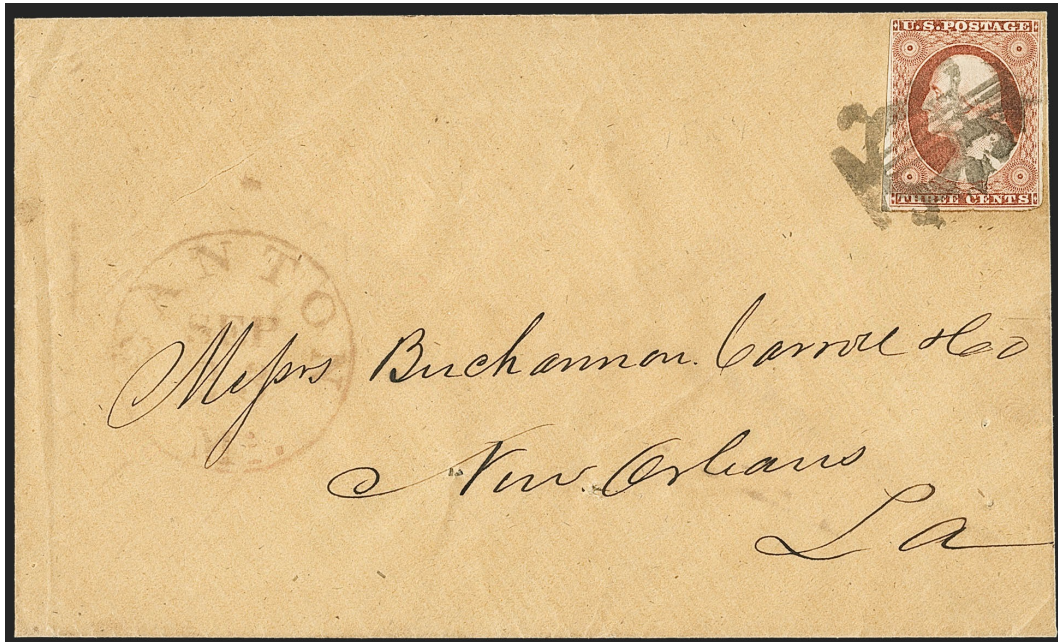 U.S.POSTAGE
THREE CENTS
CANTON
SEP
Messrs Buchannon. Carroll & Co
New. Orleans
La